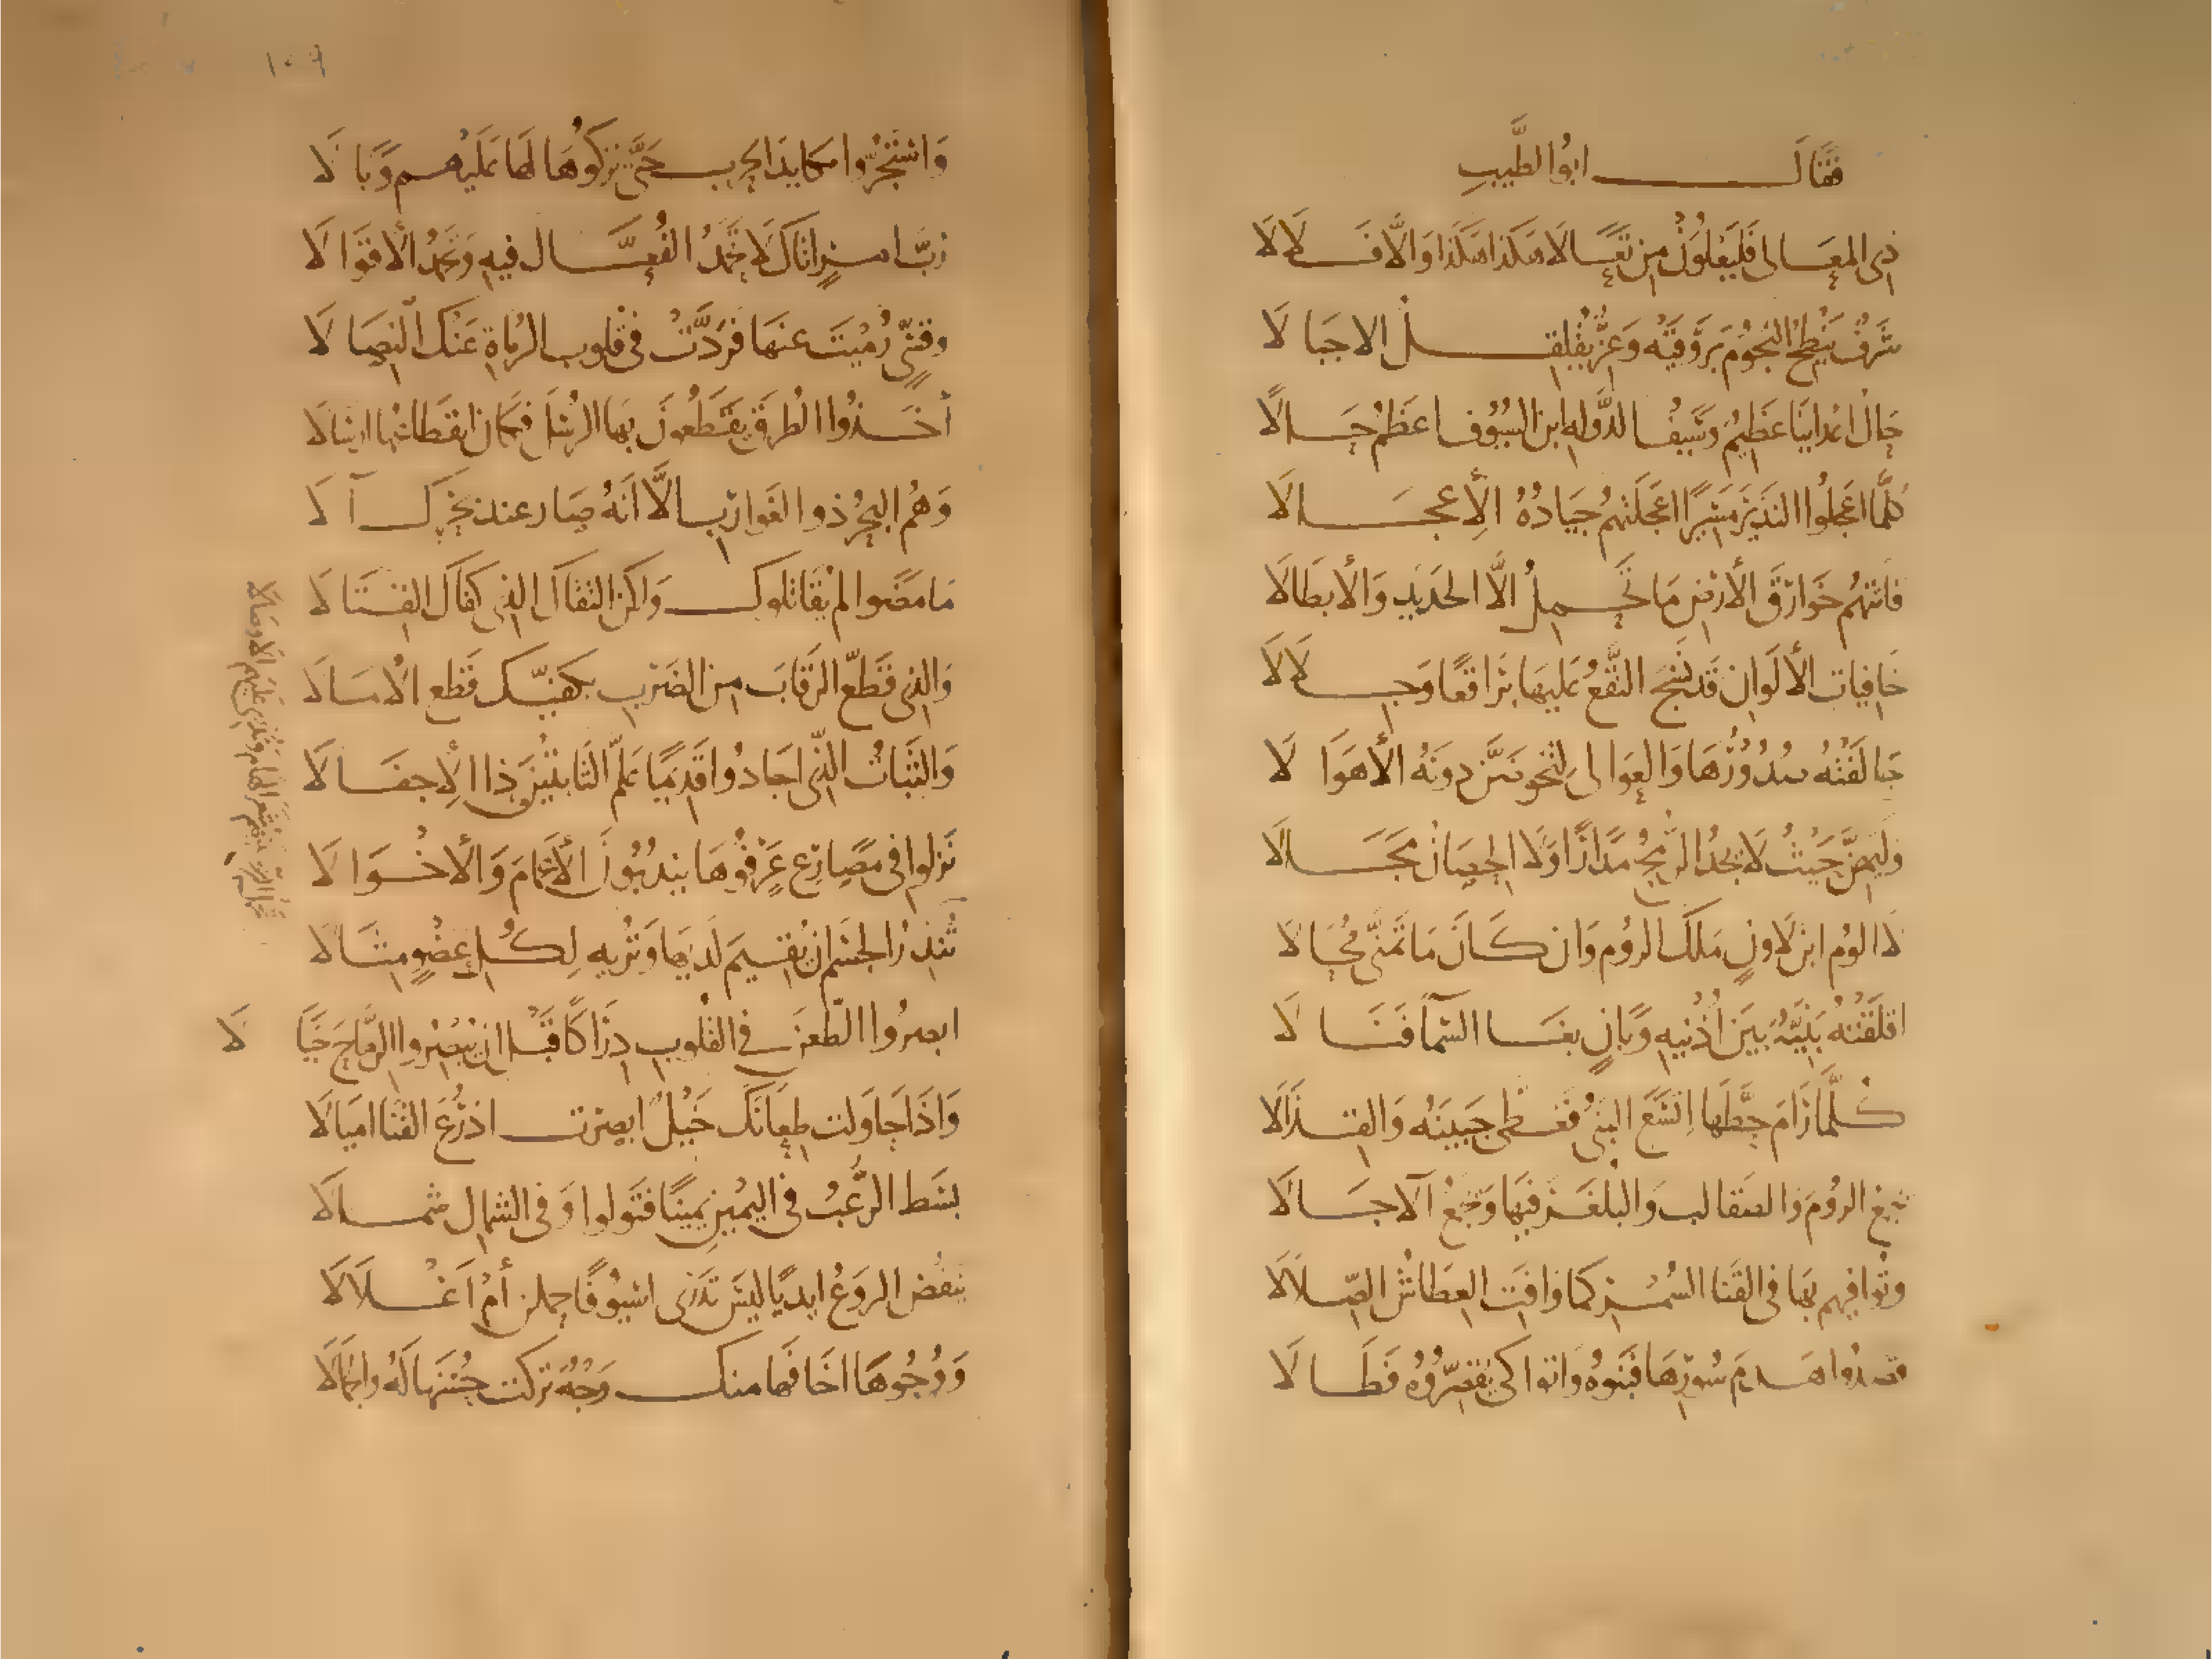 فقال ابُوا لطَّيبِ
ذي المعَالى فَليَعْلُوَنْ مِن تعَالَا هَكذا هَكذَا وَالَّا فَلَا لَا
شَرَفٌ يَنْطِحُ النجُومَ بِرَوْقَيْه وَعِزٌّ يُقلِقلُ الاجبَالَا
حَالُ اعْدَائِنَا عَظِيمٌ وَسَيفُ الدَّولهِ ابن السيُوف اعظمُ حَالًا
كلَّما اعْجلُوا النذيرَ مَسِيرًا اعجَلَتهُم جِيَادُهُ الإعجَالَا
فَاتتهُم خَوَارقَ الأرْضِ مَا تَحمِلُ الَّا الحَدَيدَ وَالأبطَالَا
خَافِيات الألوَانِ قَد نسَجَ النَّقعُ عَليهَا بَرَاقعًا وَجِلَالَا
حَالفَتهُ صُدُوُرُهَا وَالعَوَالى لتَخُوضَنَّ دونَهُ الأهوَالَا
وَلتمضِنَّ حَيثُ لَا يجدُ الرُّمحُ مَدَارًا وَلَا الحِصَانُ مَجَالَا
لَا الوُم ابن لَاونٍ مَلكَ الروُم وَان كَانَ مَا تَمنَّى مُحَالَا
اقلَقَتْهُ بَنِيَّةٌ بَينَ اُذْنيهِ وَبَانٍ بغَا السَّمآ فَنَالَا
كُلَّمَا رَامَ حَطَّهَا اِتسَعَ البَنْيُ فَغَطى جَبينَهُ وَالقذَالَا
تجمَعُ الروُمَ وَالصَقالبَ وَالبُلْغَرَ فيهَا وَتجمَعُ الآجَالَا
وتُوَافيهم بهَا فى القَنا السُمْرِ كمَا وَافَتِ العِطَاشُ الصِّلَالَا
قصَدُوا هَدمَ سُورِهَا فبَنوهُ وَاتوا كى يُقصِّرُوُه فَطَالَا
وَاسْتجَرُّوا مكايدَ الحَربِ حَتَّى تركوُهَا لهَا عَليْهم وَبَالَا
رُبَّ امرٍ اتاكَ لَا تحْمَدُ الفُعَّال فيهِ وَتحَمدُ الأفعَالَا
وقِسِّيٍ رُمِيْتَ عنهَا فَرَدَّتْ فى قلُوب الرُمَاةِ عَنْكَ النِصَالَا
أخَذُوا الطُرقَ يقْطَعُونَ بهَا الرُسْلَ فكَان انقطَاعُهَا ارسَالَا
وَهُمُ البَحْرُ ذوا الغَوَارِبِ الَّا انَهُ صَارَ عند بَحْرِكَ آلَا
مَا مَضَوا لم يقَاتلوكَ وَلكنَّ القتَالَ الذِى كَفَاكَ القِتَالَا
وَالذِى قَطَعَ الرِقابَ مِن الضَرْبِ بِكفيّكَ قَطعَ الآمَالَا
وَالثَبَاتُ الذِّى اجَادُوا قَدِيمًا عَلّم الثَابتيْنَ ذا الإجفَالَا
نزلُوا فى مَصَارِعٍ عَرَفُوهَا يَندُبُونَ الأعْمَامَ وَالأخْوَالَا
تحمل الريح بينهم شعر الهام وتذرى عَليهم الاوصالا
تُنذِرُ الجسْمَ ان يُقِيمَ لَديهَا وَتُريهِ لِكُلِ عضْوٍ مِثَالَا
ابصرُوا الطعنَ فى القلُوبِ دِرَاكًا قبلَ ان يُبْصِروا الرِّمَاحَ خَيَالَا
وَاذَا حَاوَلت طِعَانَكَ خَيلٌ ابصَرت اذرُعَ القَنَا امْيَالَا
بسَط الرُّعبُ فى اليَمين يَمينًا فتَولوا وَفى الشمالِ شمَالَا
يَنفُضُ الروَعُ ايدِيًا ليسَ تَدرِى اسُيُوفًا حملنَ أمْ اَغْلَالَا
وَوُجُوهًا اخَافَهَا منك وَجهٌ تركت حُسْنهَا لَهُ وَالجمَالَا
١٠٩